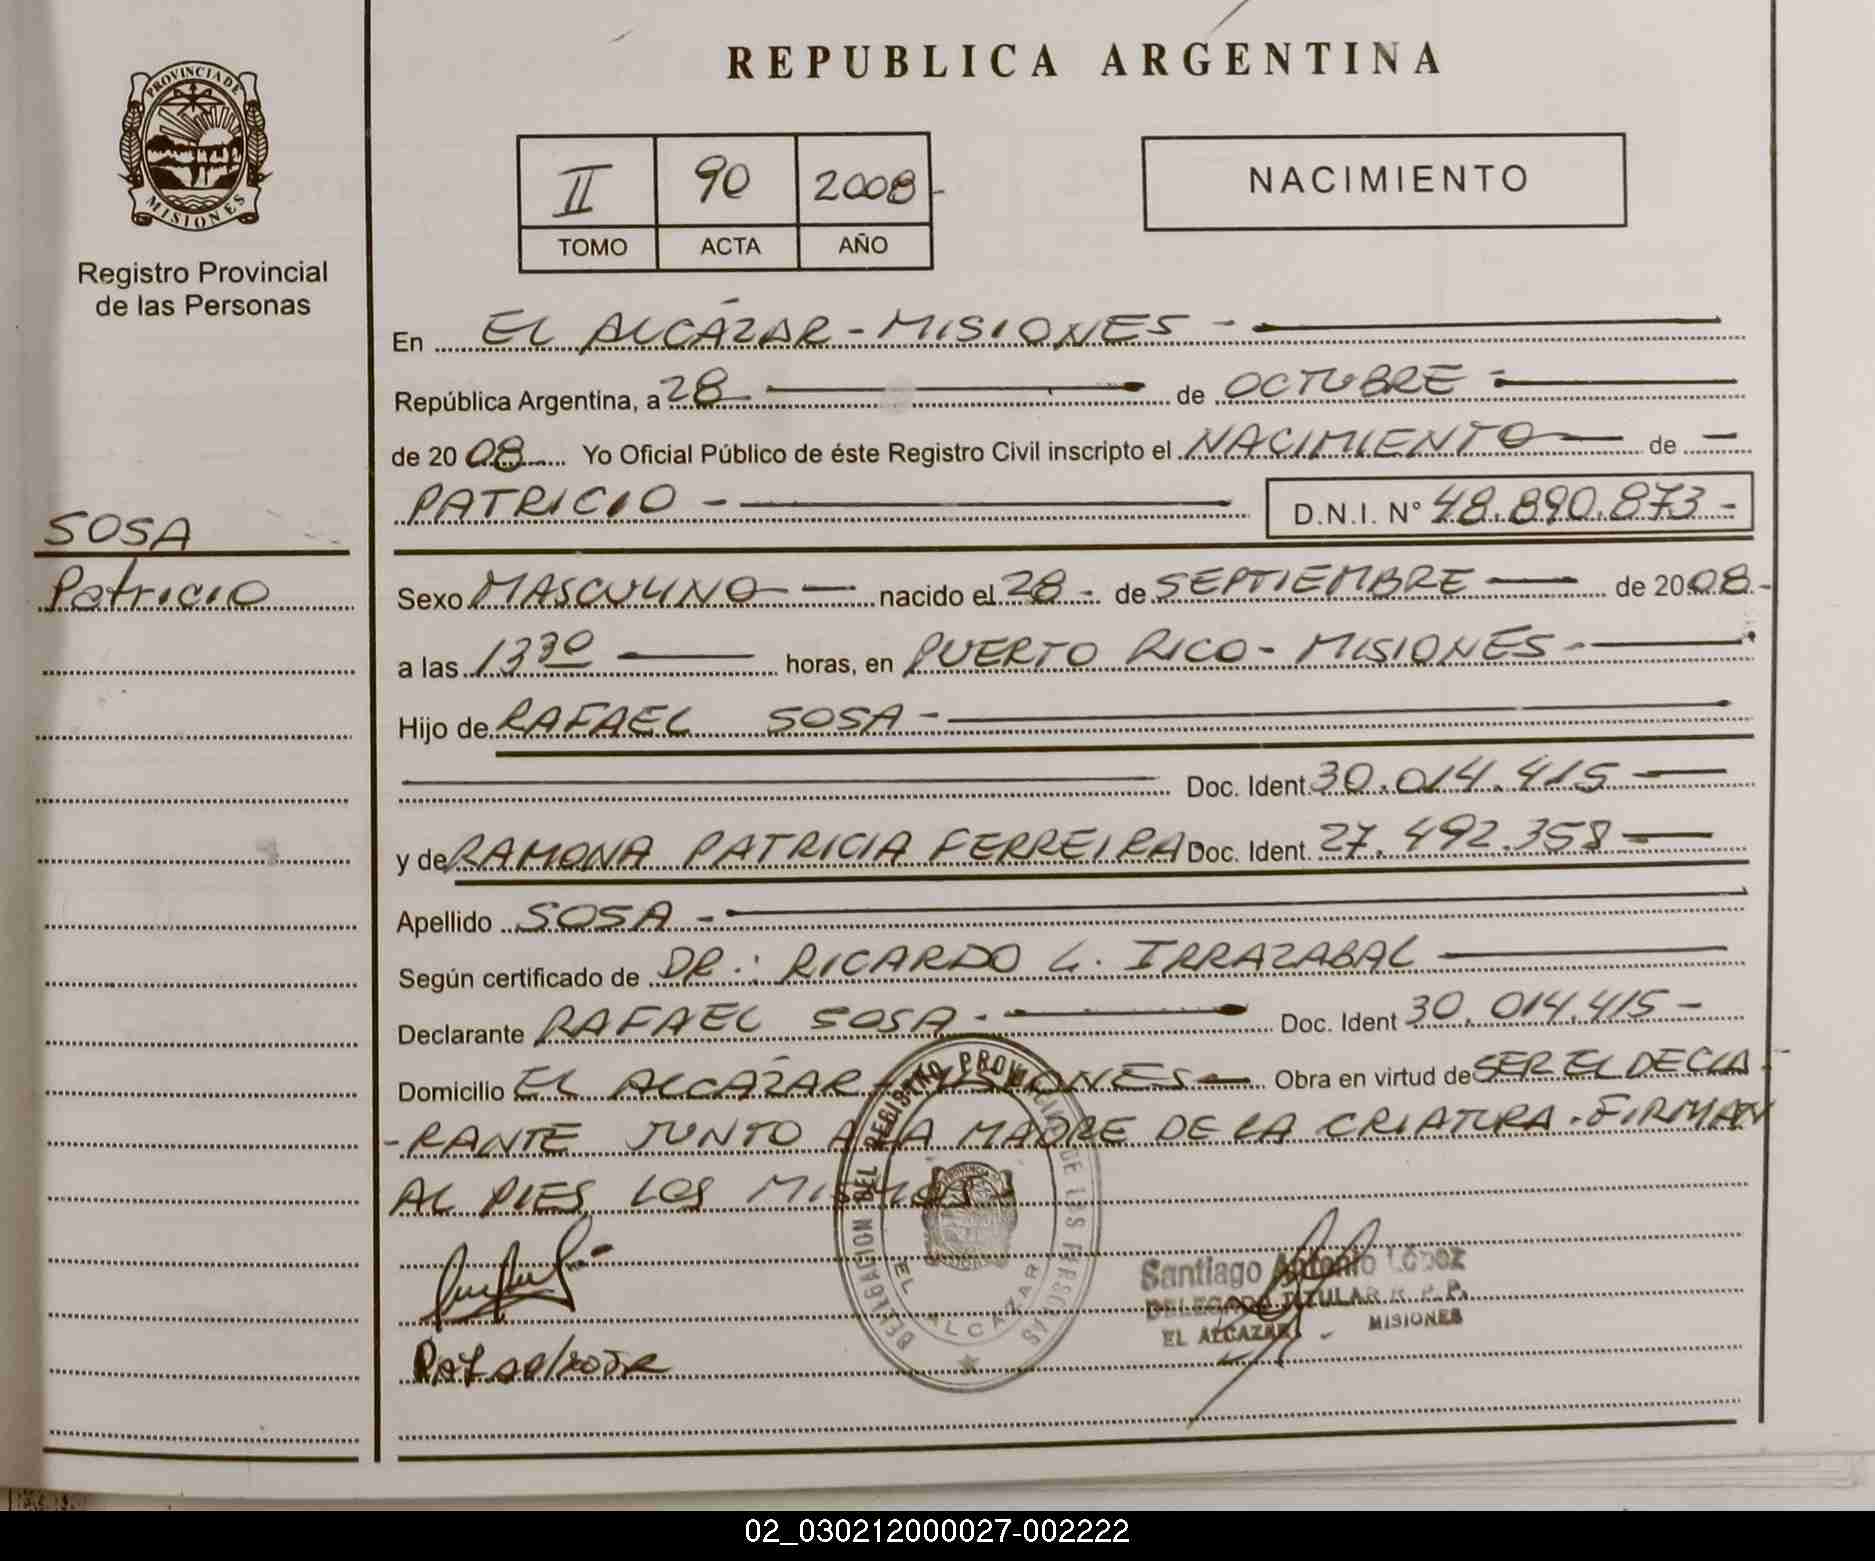 REPUBLICA ARGENTINA
PROVINCIA DE
MISIONES
Registro Provincial
de las Personas
II 90 2008-
TOMO ACTA AÑO
NACIMIENTO
En EL ALCÁZAR - MISIONES -
República Argentina, a 28 de OCTUBRE -
de 2008 Yo Oficial Público de éste Registro Civil inscripto el NACIMIENTO de -
PATRICIO - D.N.I. N° 48.890.873-
SOSA
Patricio
Sexo MASCULINO nacido el 28 - de SEPTIEMBRE de 2008-
a las 13 30 horas, en PUERTO RICO - MISIONES -
Hijo de RAFAEL SOSA -
Doc. Ident. 30.014.415
y de RAMONA PATRICIA FERREIRA Doc. Ident. 27.492.358
Apellido SOSA -
Según certificado de DR.: RICARDO L. IRRAZABAL
Declarante RAFAEL SOSA - Doc. Ident 30.014.415 -
Domicilio EL ALCÁZAR - MISIONES - Obra en virtud de SER EL DECLA-
-RANTE JUNTO A LA MADRE DE LA CRIATURA. FIRMAN
AL PIES LOS MISMOS -
DELEGACION DEL REGISTRO PROVINCIAL DE LAS PERSONAS
EL ALCAZAR
Santiago Antonio López
DELEGADO TITULAR R. P. P.
EL ALCAZAR - MISIONES
02_030212000027-002222